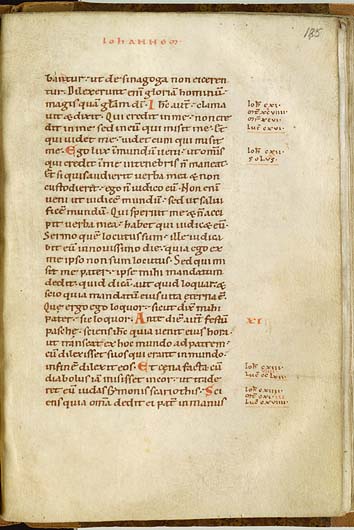 185
IOHANNEM
bantur · ut de sinagoga non eicerent
tur. Dilexerunt eni gloriam hominu
magis qua glam di. Ihc aut · clama
uit & dixit. Qui credit in me · non cre
dit in me sed in eu qui misit me. Et
qui uidet me · uidet eum qui misit
me. Ego lux in mundu ueni · ut omis
qui credit in me in tenebris n maneat.
Et si quis audierit uerba mea & non
custodierit · ego n iudico eu. Non eni
ueni ut iudice mundu · sed ut salui
fice mundu. Qui spernit me & n acci
pit uerba mea · habet qui iudic& eu.
Sermo que locutus sum · ille iudica
bit eu in nouissimo die · quia ego ex
me ipso non sum locutus. Sed qui mi
sit me pater · ipse mihi mandatum
dedit quid dica aut quid loquar · &
scio quia mandatu eius uita eterna e.
Que ergo ego loquor · sicut dix mihi
pater · sic loquor. Ante die aut festu
pasche · sciens ihc quia uenit eius hora ·
ut transeat ex hoc mundo ad patrem ·
cu dilexisset suos qui erant in mundo ·
in fine dilexit eos. Et cena facta cu
diabolus ia misisset in cor · ut trade
ret eu iudas symonis scariothis. Sci
ens quia oma dedit ei pat in manus
Ioh cxi.
Luc cxvi.
Ioh cxii
solus.
XI
Ioh cxiii
Ioh cxiiii